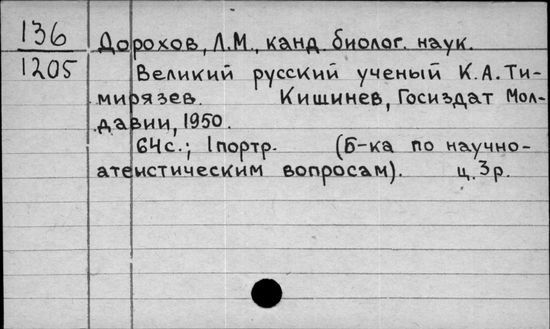 136
1205
Дорохов, Л.М., канд. биолог. наук.
Великий русский ученый К.А. Ти-
мирязев. Кишинев, Госиздат Мол-
давии, 1950.
64с.; 1портр. (Б-ка по научно-
атеистическим вопросам). ц. 3р.